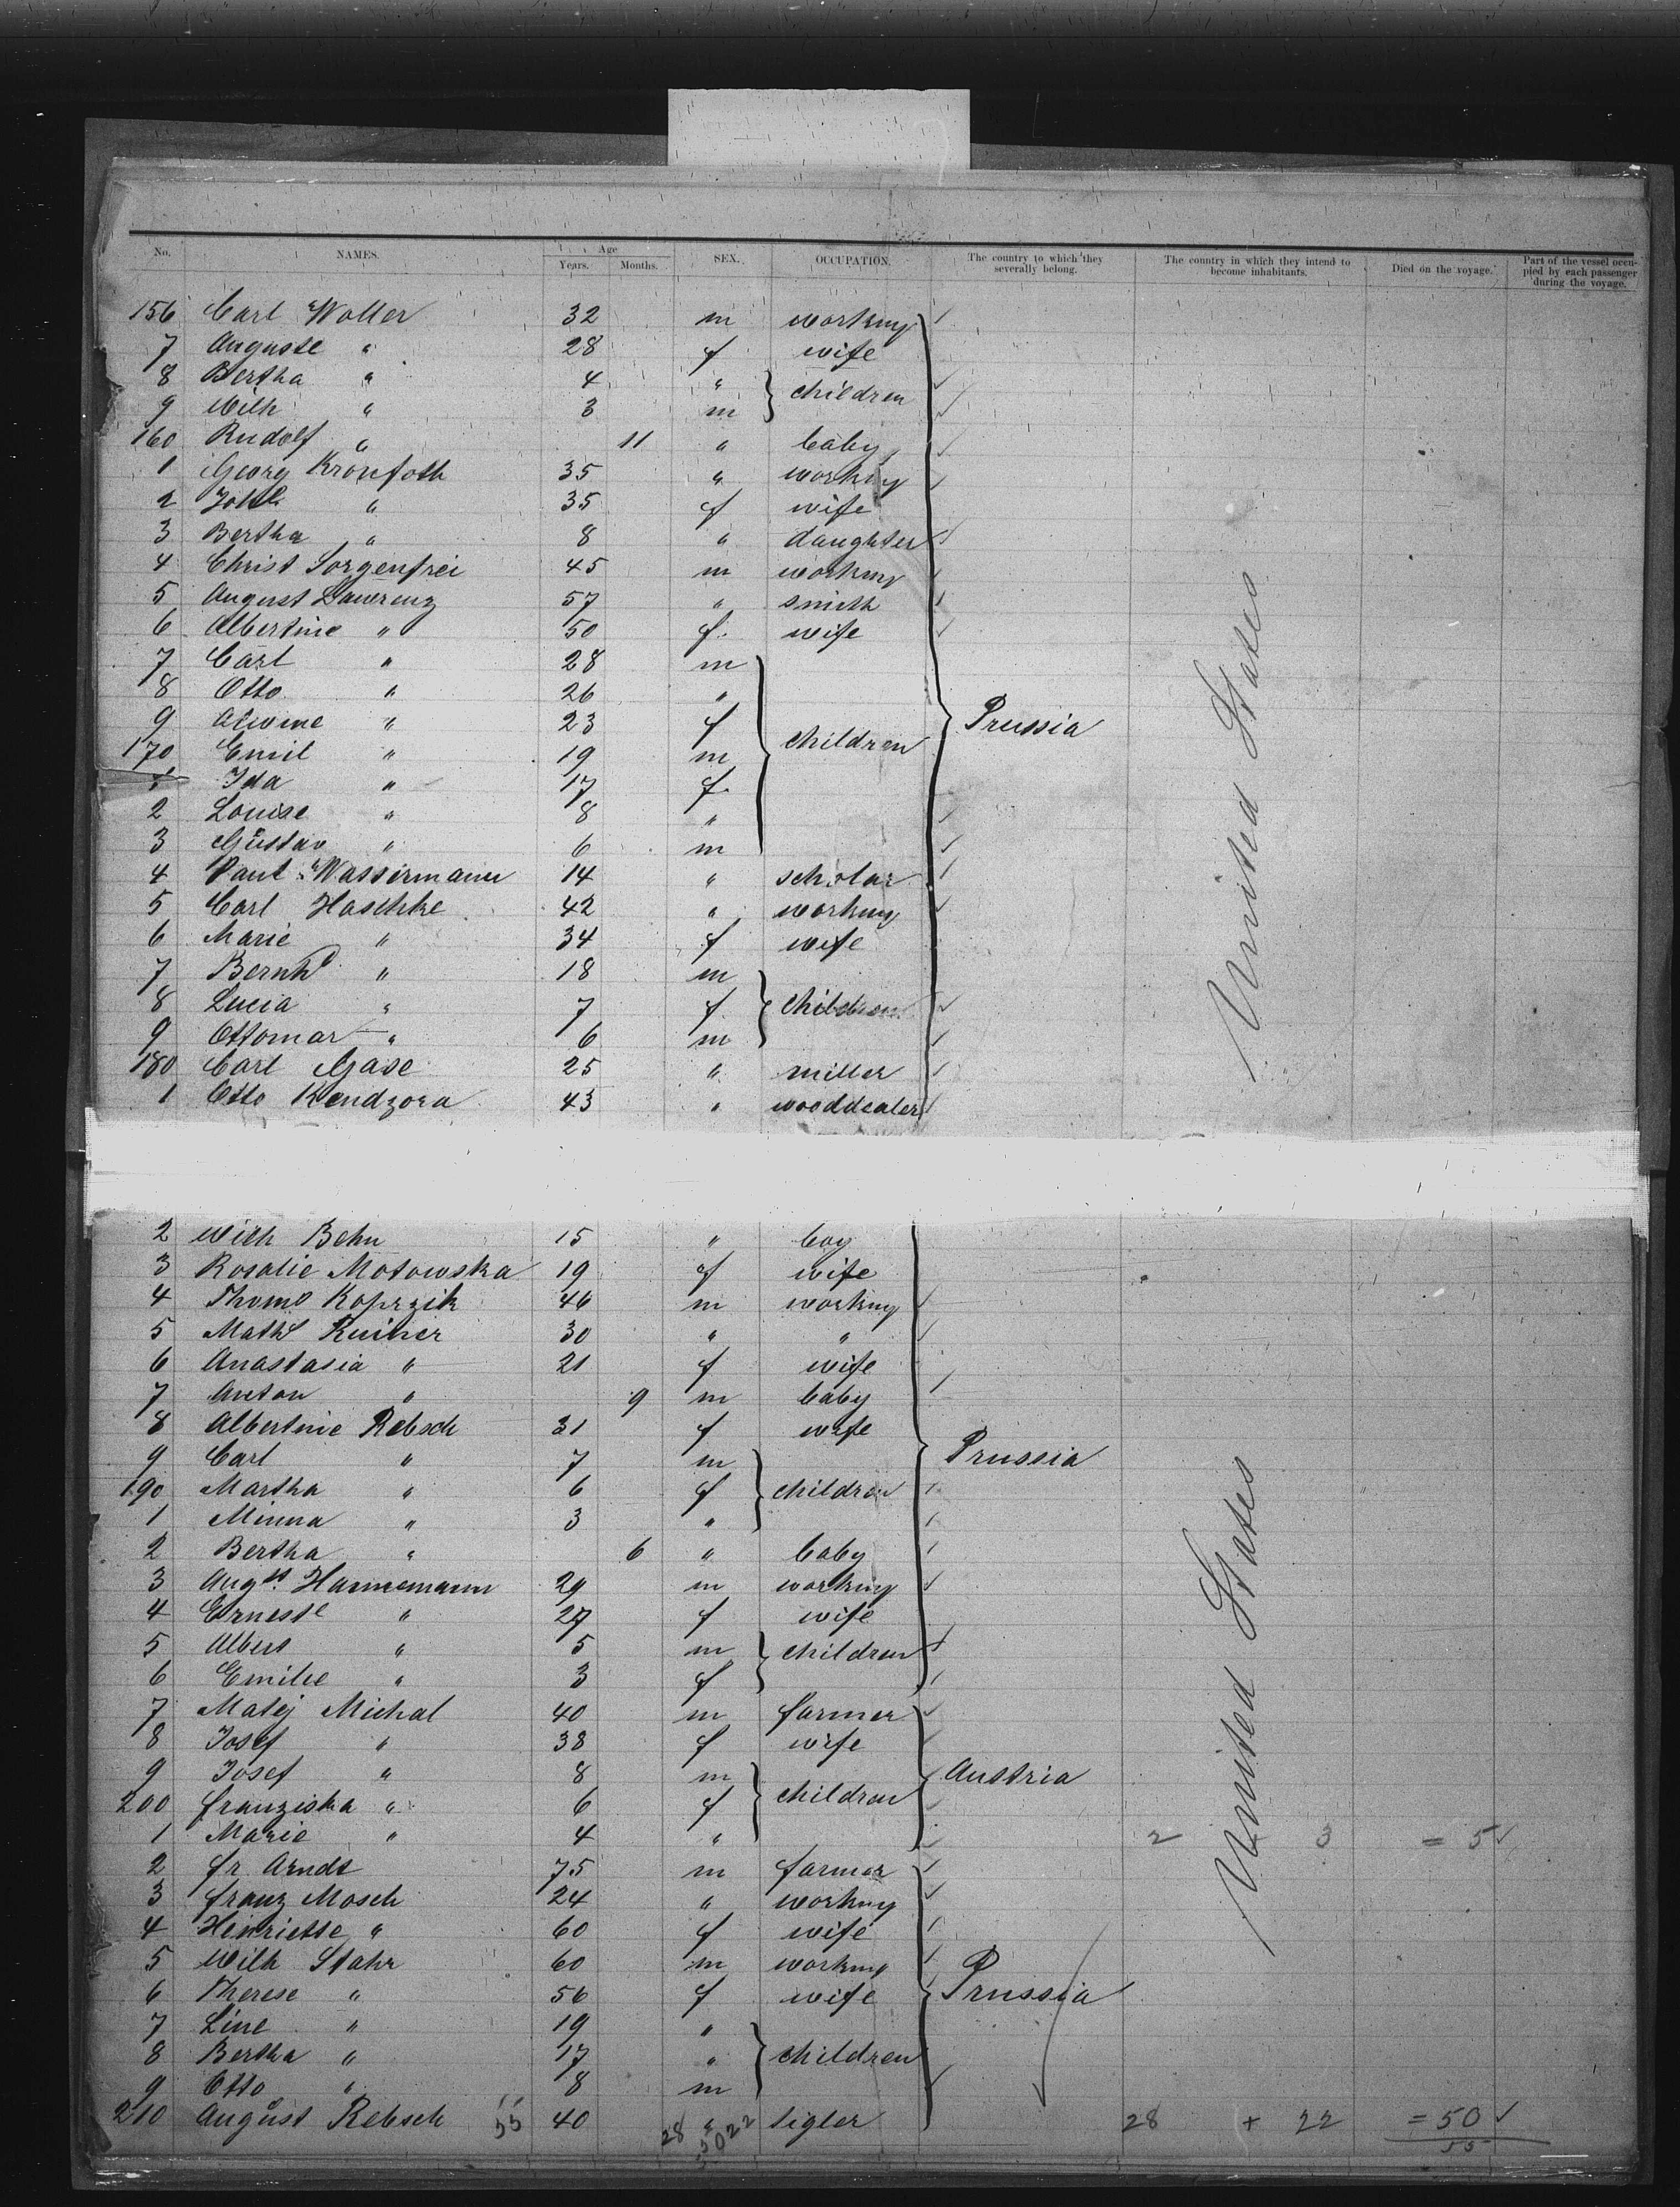 No. NAMES. Age Years. Months. SEX. OCCUPATION. The country to which they severally belong. The country in which they intend to become inhabitants. Died on the voyage. Part of the vessel occupied by each passenger during the voyage.
156 Carl Woller 32 m working
7 Auguste " 28 f wife
8 Bertha " 4 " children
9 Wilh " 3 m
160 Rudolf " 11 " baby
1 Georg Kronfoth 35 " working
2 " 35 f wife
3 Bertha " 8 " daughter
4 Christ Sorgenfrei 45 m working
5 August Lawrenz 57 " smith
6 Albertine " 50 f. wife
7 Carl " 28 m
8 Otto " 26 "
9 Alwine " 23 f children Prussia
170 Emil " 19 m
1 Ida " 17 f.
2 Louise " 8 "
3 Gustav " 6 m
4 Paul Wassermann 14 " scholar
5 Carl Haschke 42 " working
6 Marie " 34 f wife
7 Bernhd " 18 m
8 Lucia " 7 f children
9 Ottomar " 6 m
180 Carl Gase 25 " miller
1 Otto Kendzora 43 " wooddealer
United States
2 Wilh Behn 15 " boy
3 Rosalie Motowska 19 f wife
4 Thoms Koprzik 46 m working
5 Mathl 30 " "
6 Anastasia " 21 f wife
7 Anton " 9 m baby
8 Albertine Rebsch 31 f wife
9 Carl " 7 m Prussia
190 Martha " 6 f children
1 Minna " 3 "
2 Bertha " 6 " baby
3 Augst. Hannemann 29 m working
4 Ernestl " 27 f wife
5 Albert " 5 m children
6 Emilie " 3 f
7 Matej Michal 40 m farmer
8 Josef " 38 f wife
9 Josef " 8 m Austria
200 Franziska " 6 f children
1 Marie " 4 " 2 3 = 5
2 Fr. Arndt 75 m farmer
3 Franz Mosch 24 " working
4 Henriette " 60 f wife
5 Wilh Stahr 60 m working
6 Therese " 56 f wife Prussia
7 Line " 19 "
8 Bertha " 17 " children
9 Otto " 8 m
210 August Rebsch 55 40 " tigler 28 + 22 = 50
28 22 50 55
United States